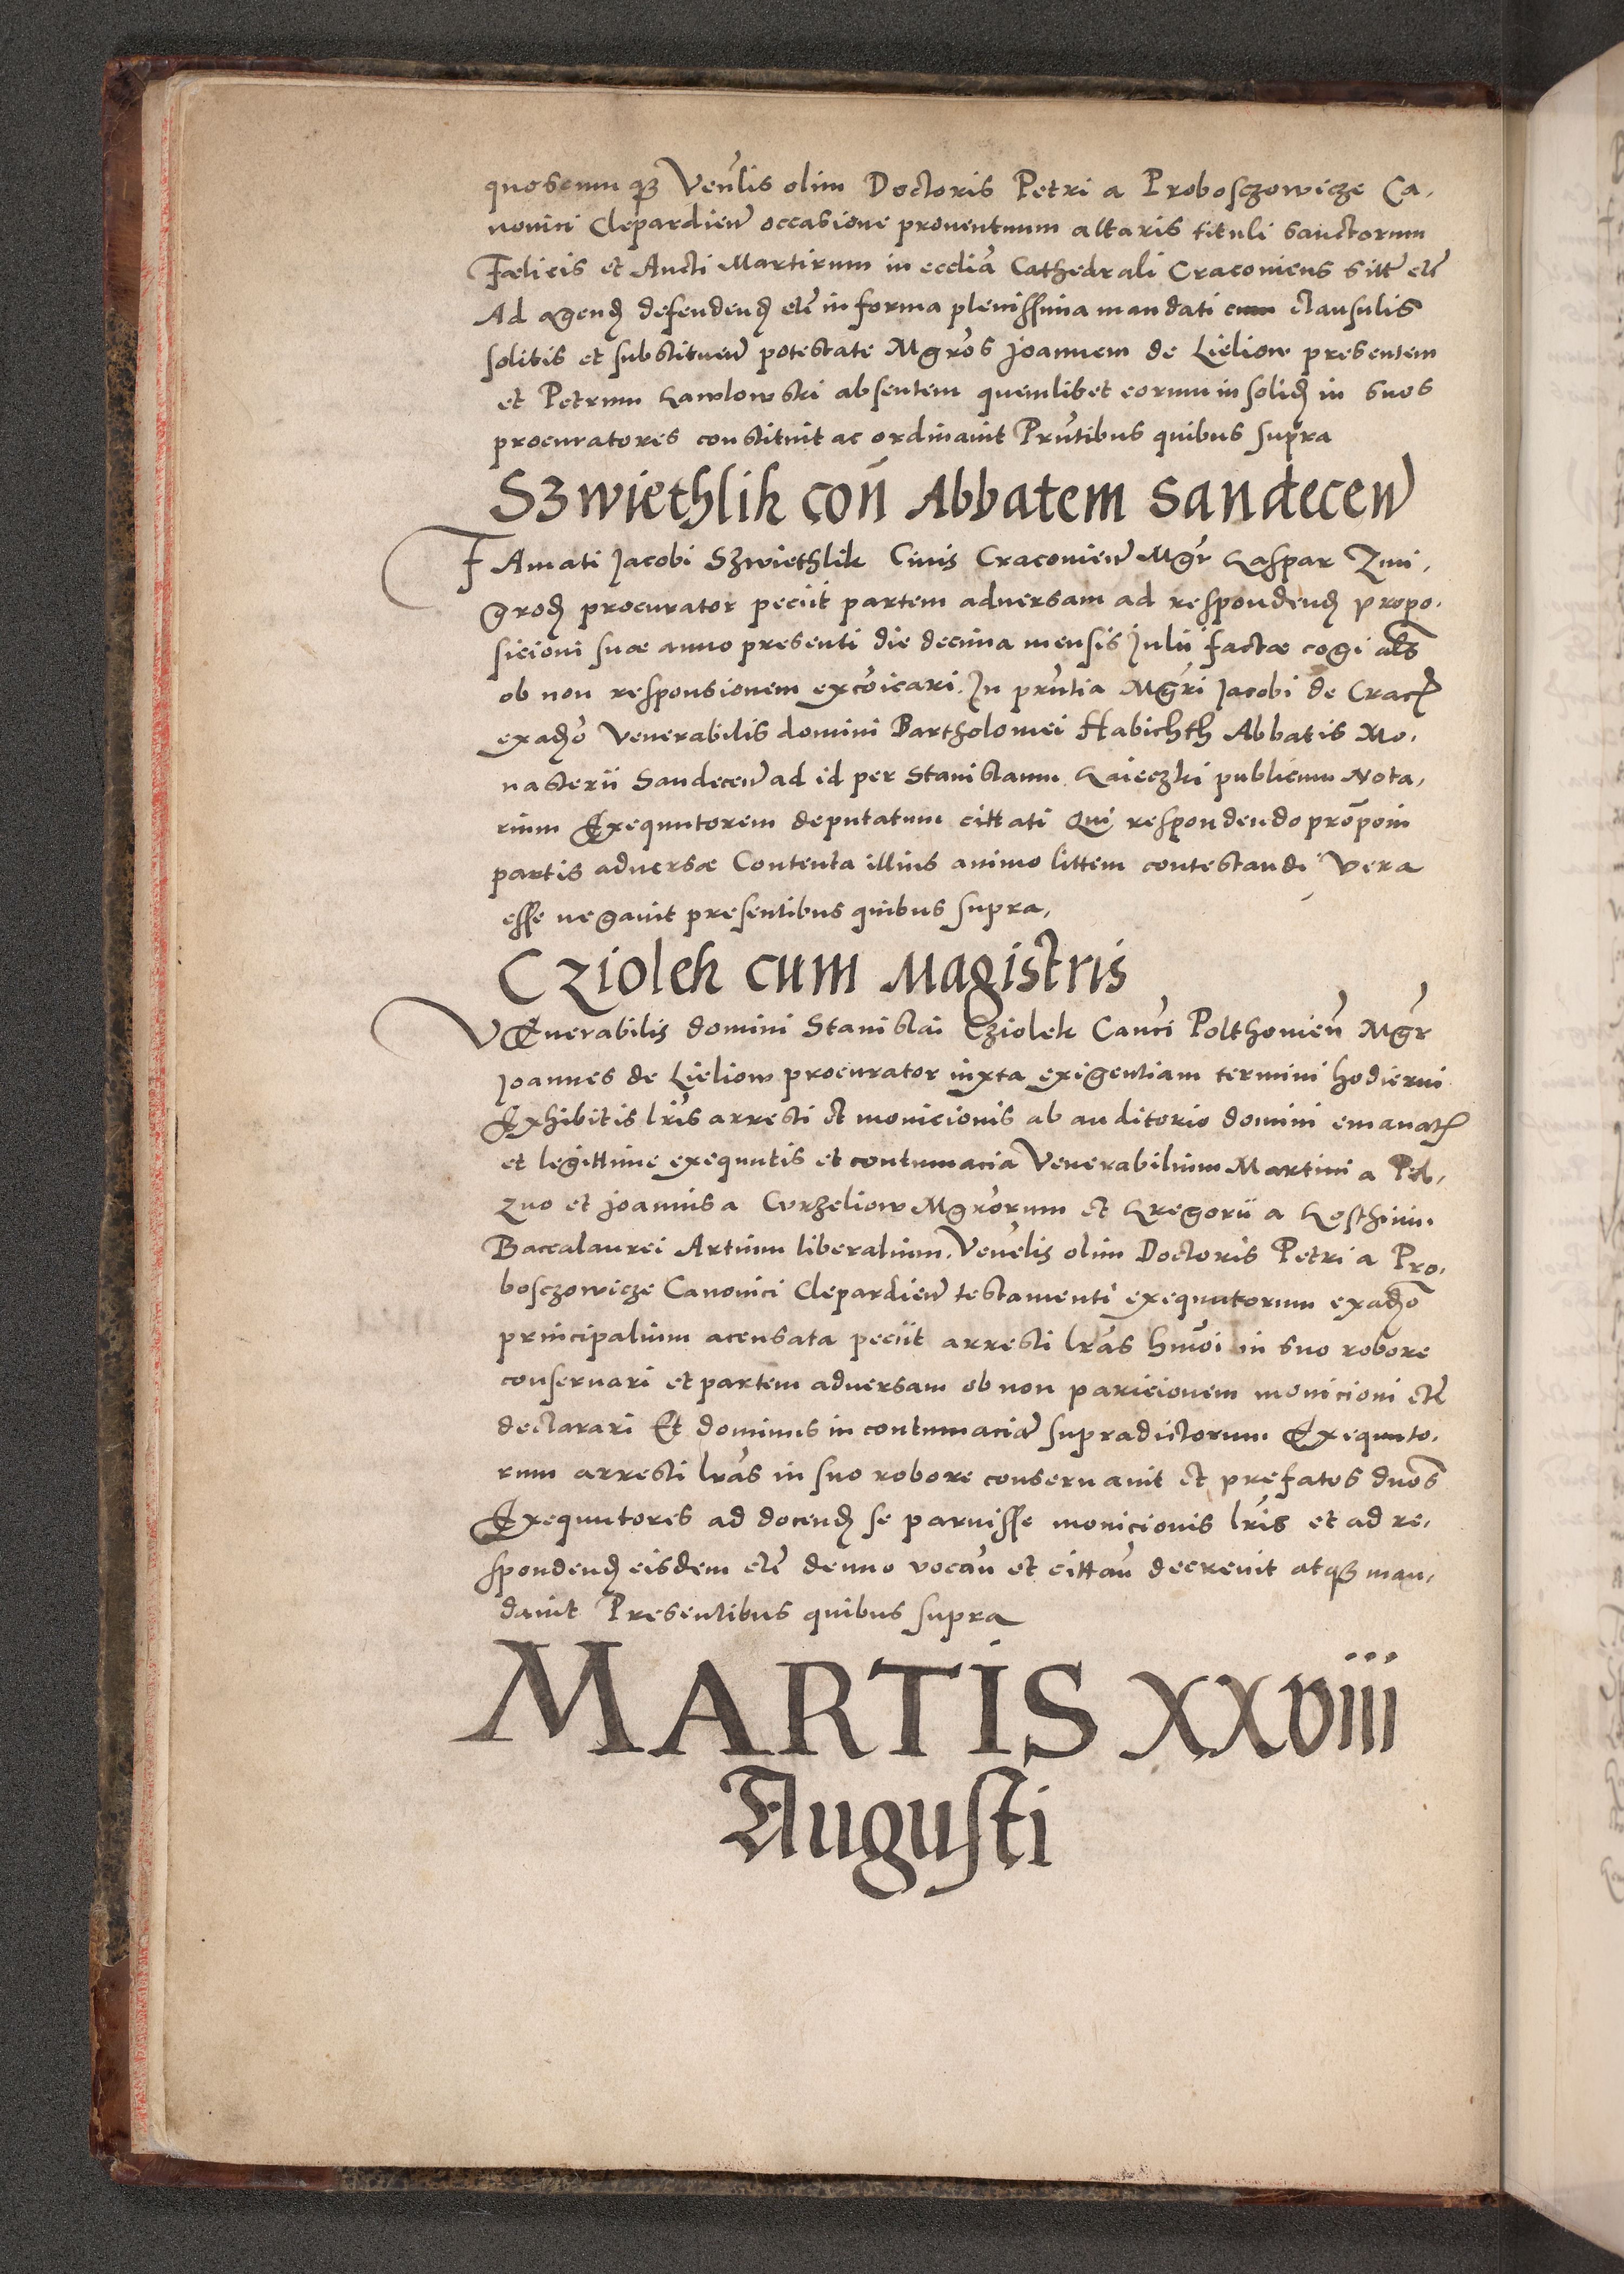 quoscumqꝫ Veńlis olim Doctoris Petri a Probosczowicze Ca,
nonici Clepardień occasione prouentuum altaris tituli sanctorum
Fælicis et Aucti Martirum in ecclia Cathedrali Craconiens sitt etc̄
Ad agend defendend etc̄ in forma plenissima mandati cum clausulis
solitis et substituen̄ potestate Mgros Joannem de Lieliow presentem
et Petrum Gawlowski absentem quemlibet eorum in solid in suos
procuratores constituit ac ordinauit Prn̄tibus quibus supra
Szwiethlik con̄ Abbatem Sandecen̄
FAmati Jacobi Szwiethlik Ciuis Cracouien̄ Mgr Gaspar Zmi,
grod procurator peciit partem aduersam ad respondend propo,
sicioni suæ anno presenti die decima mensis Julii factæ cogi als
ob non responsionem exco̅icari. In prn̄tia Mgri Jacobi de Crac
exadꝫo Venerabilis domini Bartholomei Habichth Abbatis Mo,
nasterii Sandecen̄ ad id per Stanislaum Gaieczki publicum Nota,
rium Exequutorem deputatum cittati Qui respondendo propo̅ni
partis aduersæ Contenta illius animo littem contestandi Vera
esse negauit presentibus quibus supra,
Cziolek cum Magistris
VEnerabilis domini Stanislai Cziolek Can̄ci Polthouien̄ Mgr
Joannes de Lieliow procurator iuxta exigentiam termini hodierni
Exhibitis lris arresti et monicionis ab auditorio domini emanat
et legittime exequutis et contumacia Venerabilium Martini a Pil,
zno et Joannis a Curzeliow Mgrorum et Gregorii a Gosthinin
Baccalaurei Artium liberalium. Venelis olim Doctoris Petri a Pro,
bosczowicze Canonici Clepardien̄ testamenti exequutorum exadꝫo
principalium acensata peciit arresti lras hmo̅i in suo robore
conseruari et partem aduersam ob non paricionem monicioni etc̄
declarari Et dominus in contumacia̅ supradictorum Exequuto,
rum arresti lras in suo robore conseruauit et prefatos duos
Exequutores ad docend se paruisse monicionis lris et ad re,
spondend eisdem etc̄ denuo vocan̄ et cittan̄ decreuit atqꝫ man,
dauit Presentibus quibus supra
MARTIS xxviii
Augusti